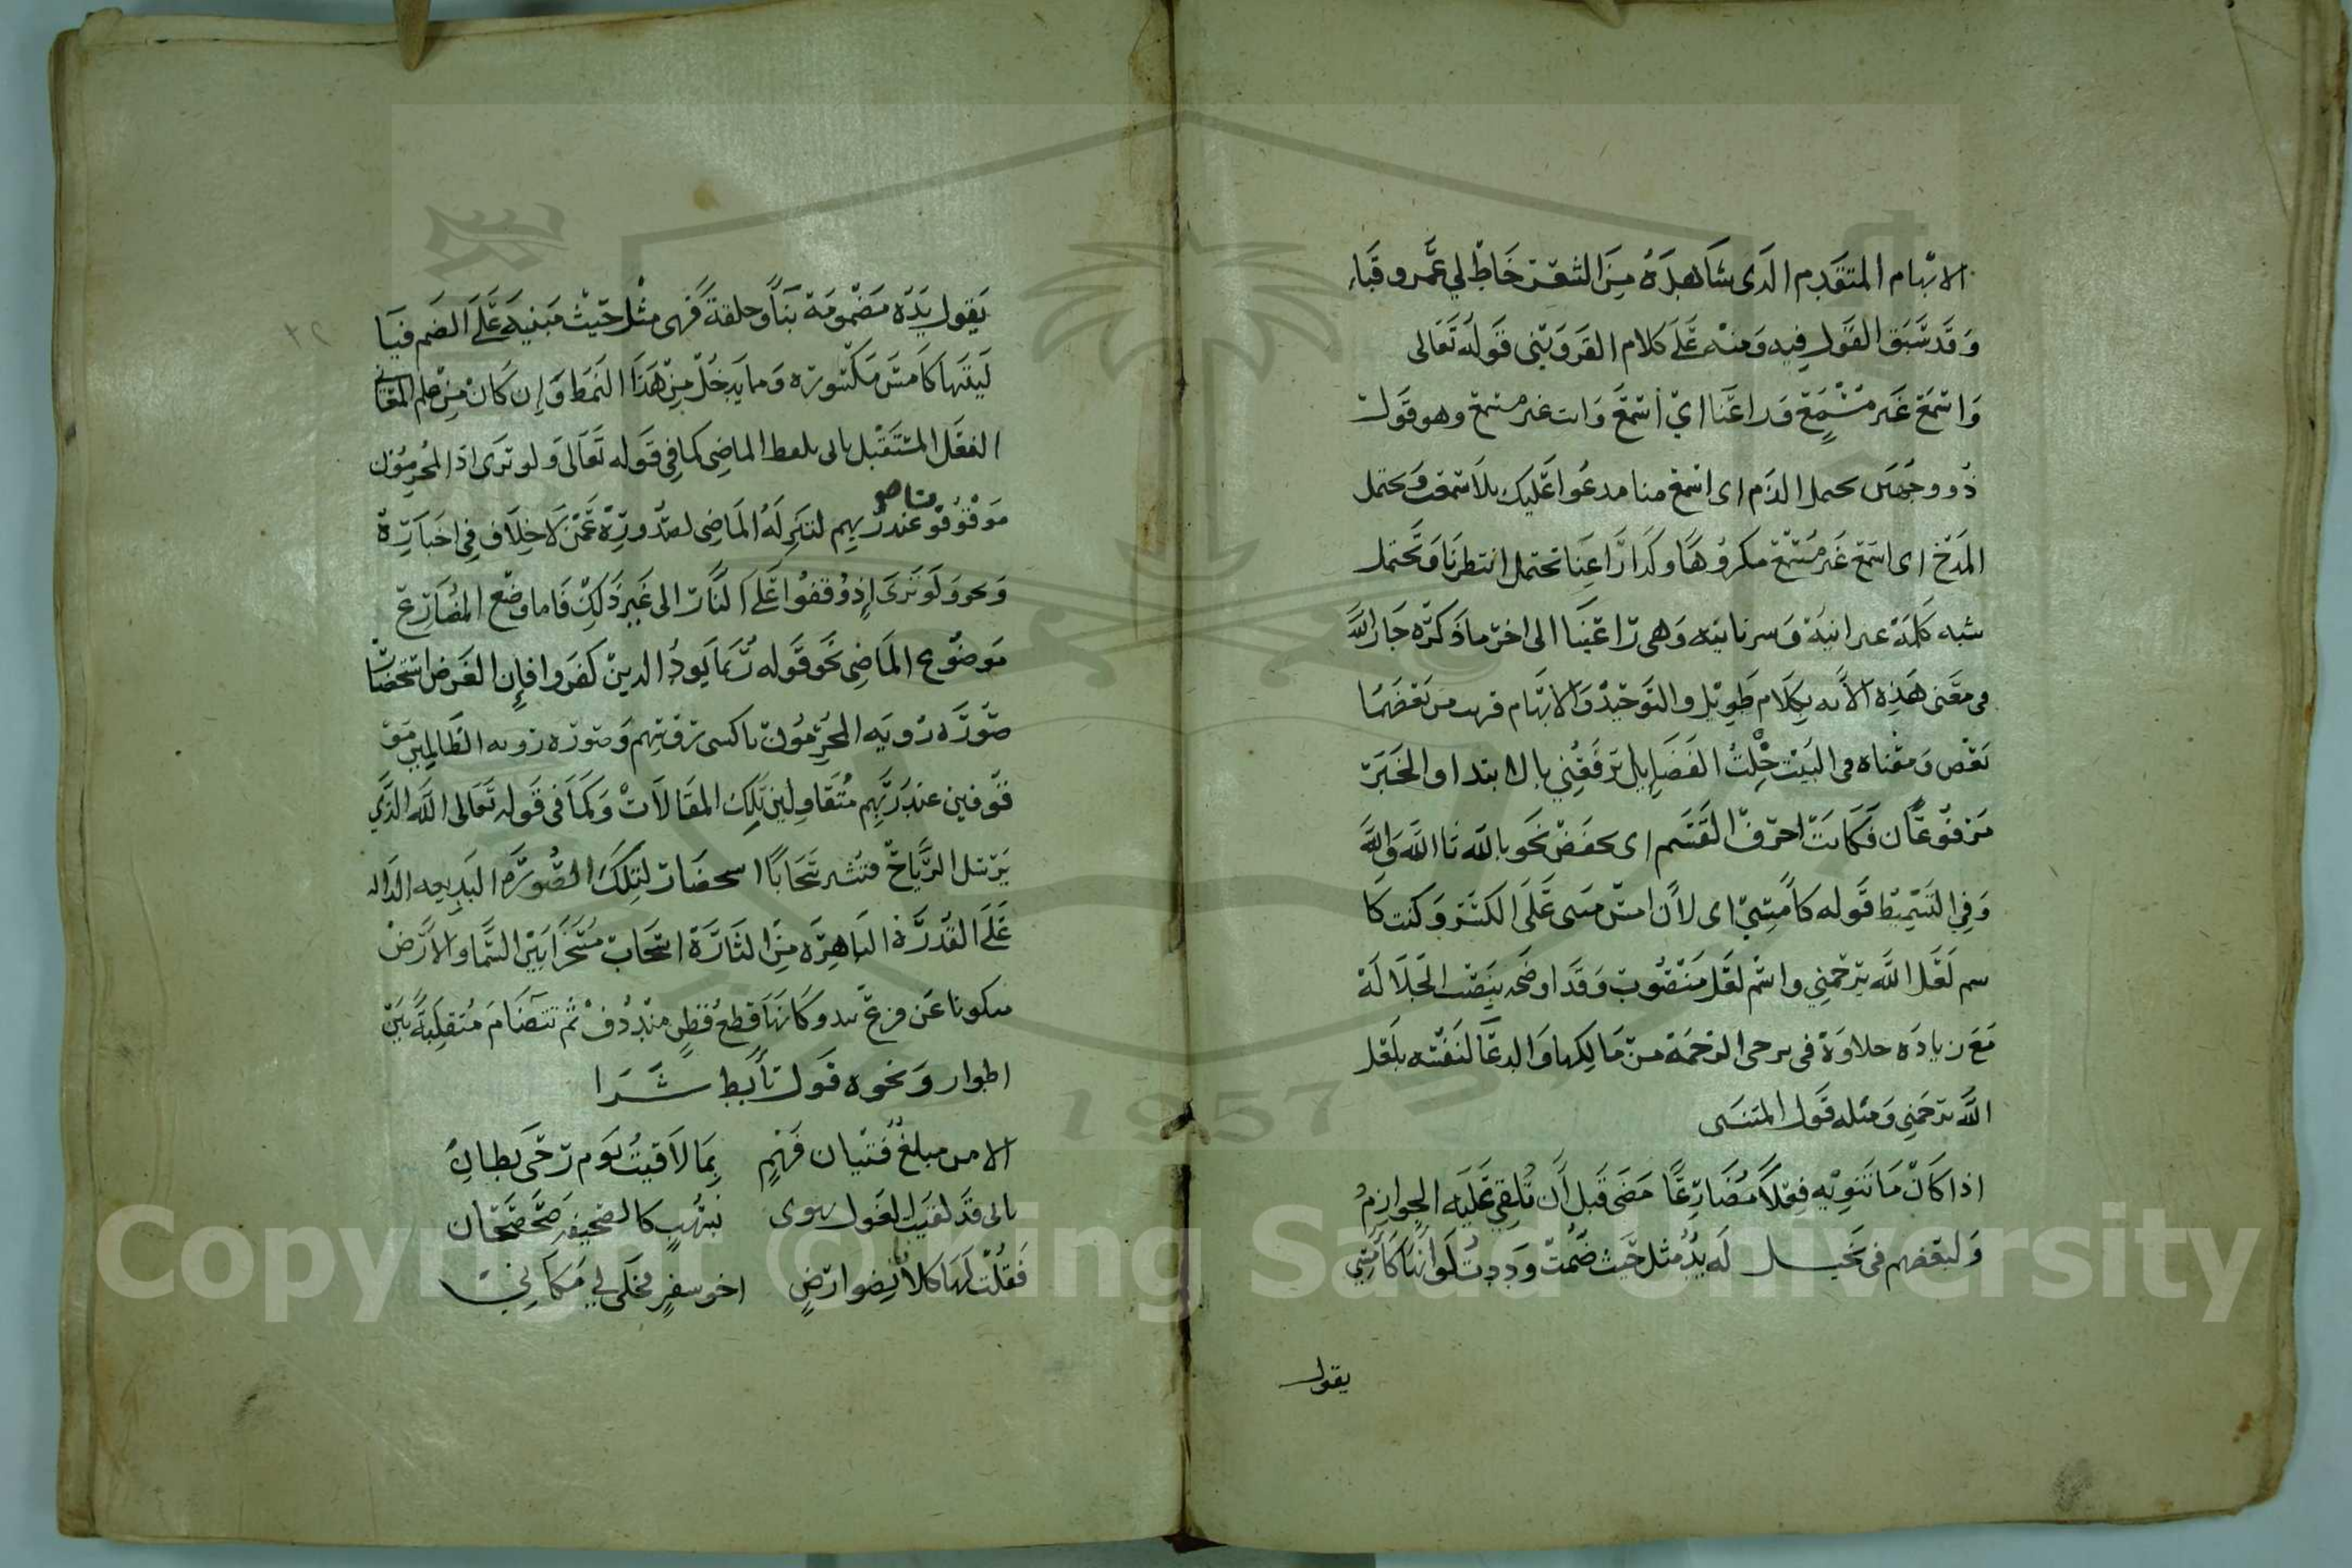 الابهام المتقدم الذى شاهده من الشعر خاط لي عمرو قباء
وقد سبق القول فيه ومنه على كلام القزويني قوله تعالى
واسمع غير مسمع وراعنا اي اسمع وانت غير مسمع وهو قول
ذو وجهين يحتمل الذم اى اسمع منا مدعوا عليك بلا سمعت ويحتمل
المدح اى اسمع غير مسمع مكروها وكذا راعنا تحتمل انتظرنا وتحتمل
شبه كلمة عبرانية وسريانية وهى راعينا الى اخر ما ذكره جار الله
فى معنى هذه الآية بكلام طويل والتوجيه والابهام قريب من بعضهما
بعض ومعناه فى البيت خلت الفضايل ترفعني بالابتدا والخبر
مرفوعان فكانت احرف القسم اى بخفض نحو بالله تا الله والله
وفي التسميط قوله كأمتي اى لأن امس مبنى على الكسر وكنت كا
سم لعل الله يرحمني واسم لعل منصوب وقد اوضحه بنصب الجلالة
مع زيادة حلاوة فى ترجى الرحمة من مالكها والدعا لنفسه بلعل
الله يرحمني ومثله قول المتنبى
اذا كان ما تنويه فعلا مضارعا مضى قبل أن تلقي عليه الجوازم
ولبعضهم فى بخيل له يد مثل حيث ضمت وددت لو انها كأمس
يقول
يقول يده مضمومة بنا وخلقة فهى مثل حيث مبنية على الضم فيا
ليتها كأمس مكسورة ومما يدخل من هذا النمط وإن كان من علم المعاني
الفعل المستقبل ياتى بلفظ الماضى كما في قوله تعالى ولو ترى اذ المجرمون
ناكسو
موقوفو عند ربهم لتنزله الماضى لصدوره عمن لا خلاف في اخباره
ونحو ولو ترى إذ وقفوا على النار الى غير ذلك فاما وضع المضارع
موضوع الماضى نحو قوله ربما يود الذين كفروا فإن الغرض استحضار
صورة روية المجرمون ناكسى رؤسهم وصورة روية الظالمين مو
قوفين عند ربهم متقاولين تلك المقالات وكما فى قوله تعالى الله الذي
يرسل الرياح فتثير سحابا استحضارا لتلك الصورة البديعة الدالة
على القدرة الباهرة من اثارة السحاب مسخرا بين السما والارض
متكونا عن قزع تبدو كانها قطع قطن مندوف ثم تتضام متقلبة بين
اطوار ونحوه قول تأبط شرا
الا من مبلغ فتيان فهم بما لاقيت يوم رحى بطان
بانى قد لقيت الغول تهوى بسهب كالصحيفة صحصحان
فقلت لها كلانا نضو ارض اخو سفر فخلى لي مكاني
Copyright © King Saud University
1957